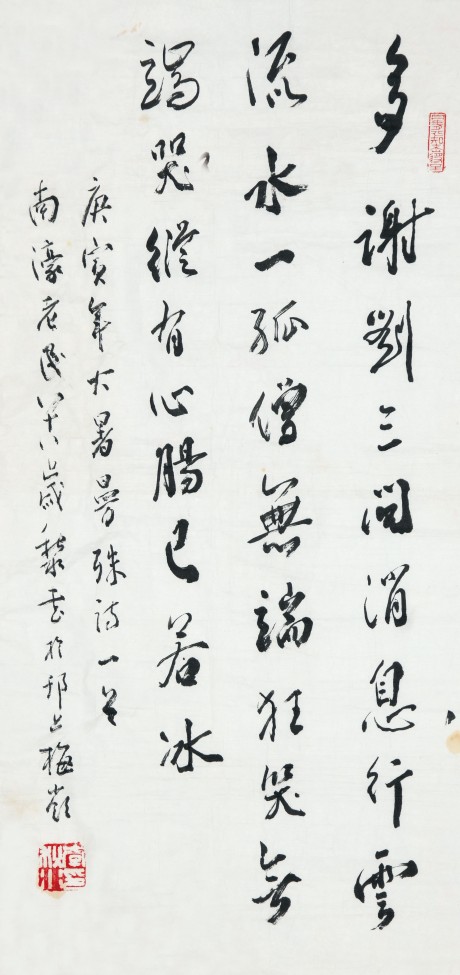 多謝劉三問消息行雲
流水一孤僧無端狂笑無
端哭縱有心腸已若冰
庚寅年大暑曼殊詩一首
南濠老民八十八歲於邗上梅嶺